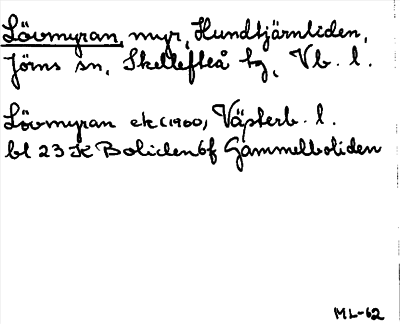 Lövmyran, myr, Hundtjärnliden,
Jörns sn, Skellefteå tg, Vb. l.
Lövmyran ek (1960), Västerb. l.
bl 23 K Boliden 6f Gammelboliden
ML-62